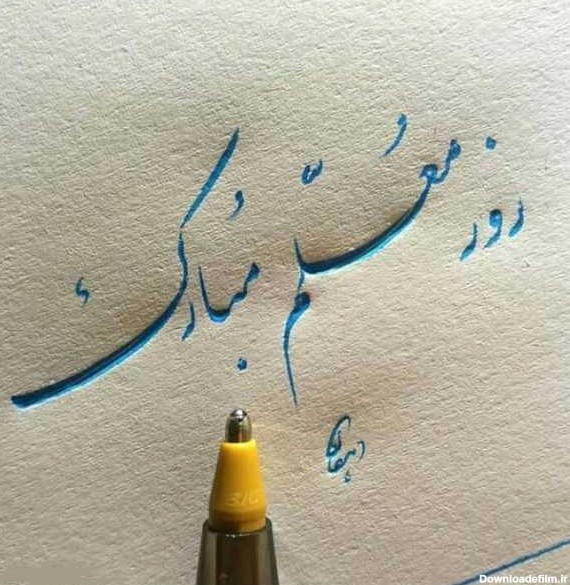 روز معلّم مبارک
Downloadefilm.ir